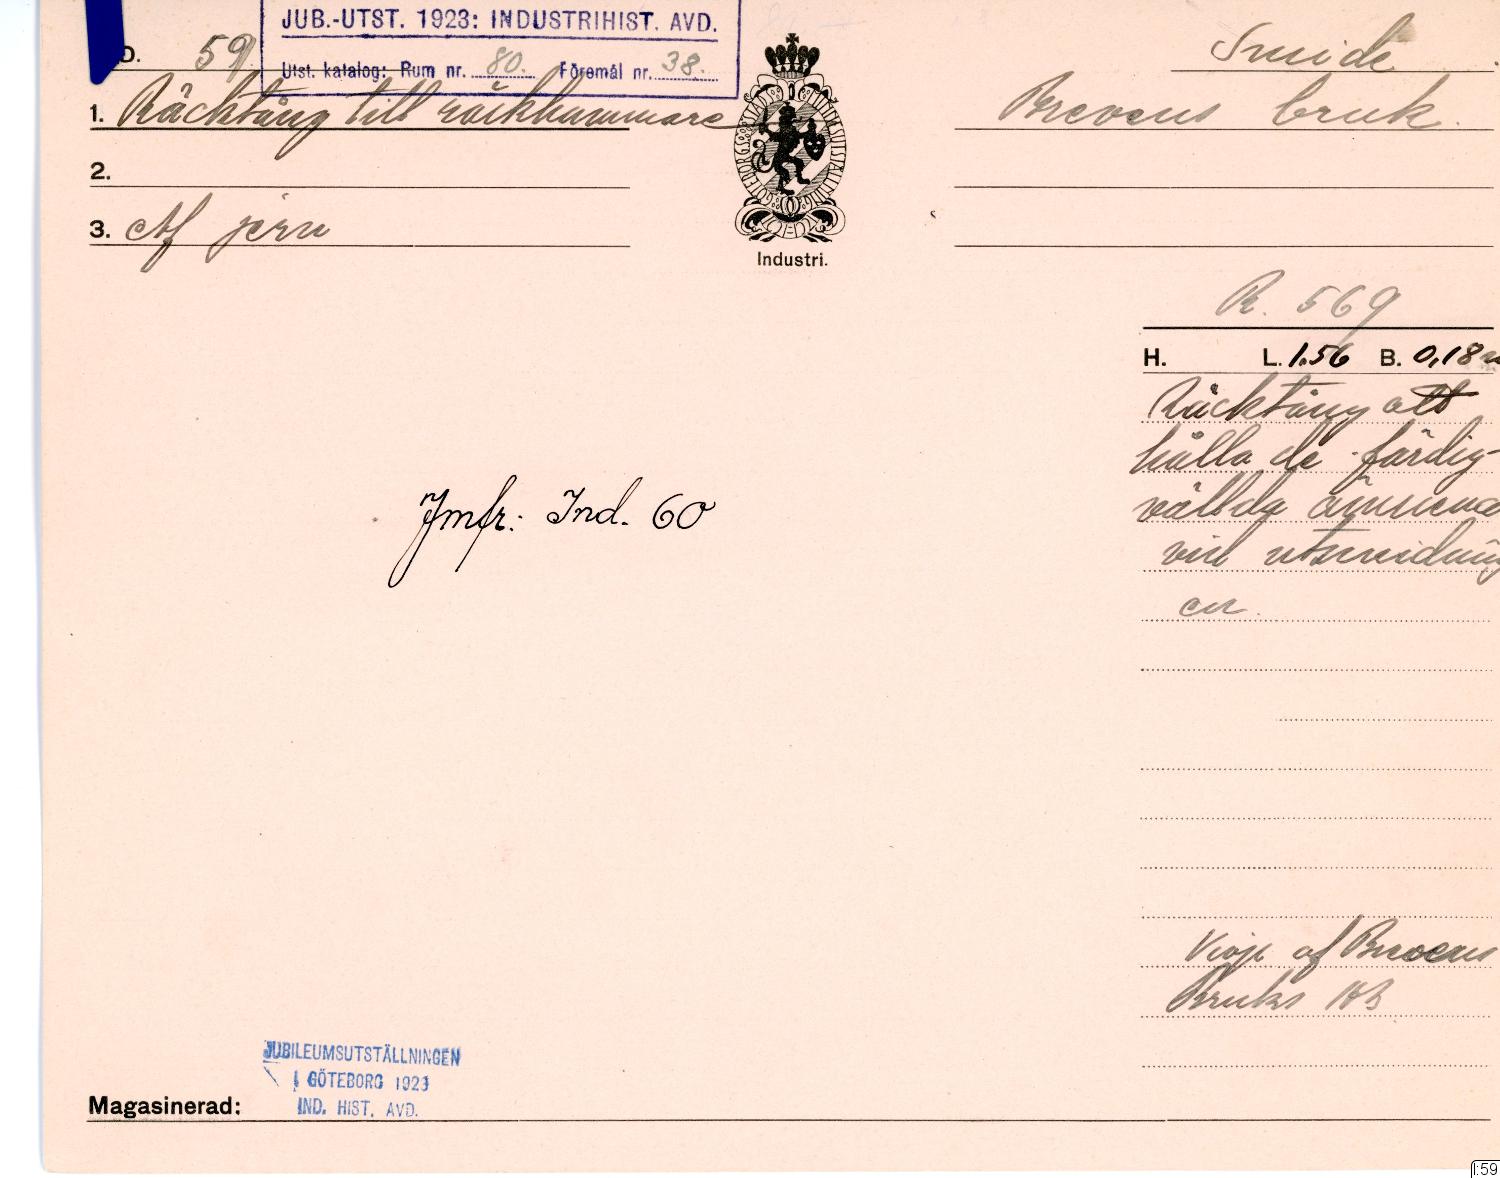 JUB.-UTST. 1923: INDUSTRIHIST. AVD.
Utst. katalog: Rum nr. 80. Föremål nr. 38.
D. 59
Smide
1. Räcktång till räckhammare
Brevens bruk.
2.
3. Af järn
GÖTEBORGS STADS JUBILEUMSUTSTÄLLNING
Industri.
R. 569
H. L. 1.56 B. 0,18 m
Räcktång att
hålla de färdig-
vällda ämnena
vid utsmidning
en.
Jmfr: Ind. 60
af Brevens
Bruks AB
JUBILEUMSUTSTÄLLNINGEN
I GÖTEBORG 1923
IND. HIST. AVD.
Magasinerad:
I:59